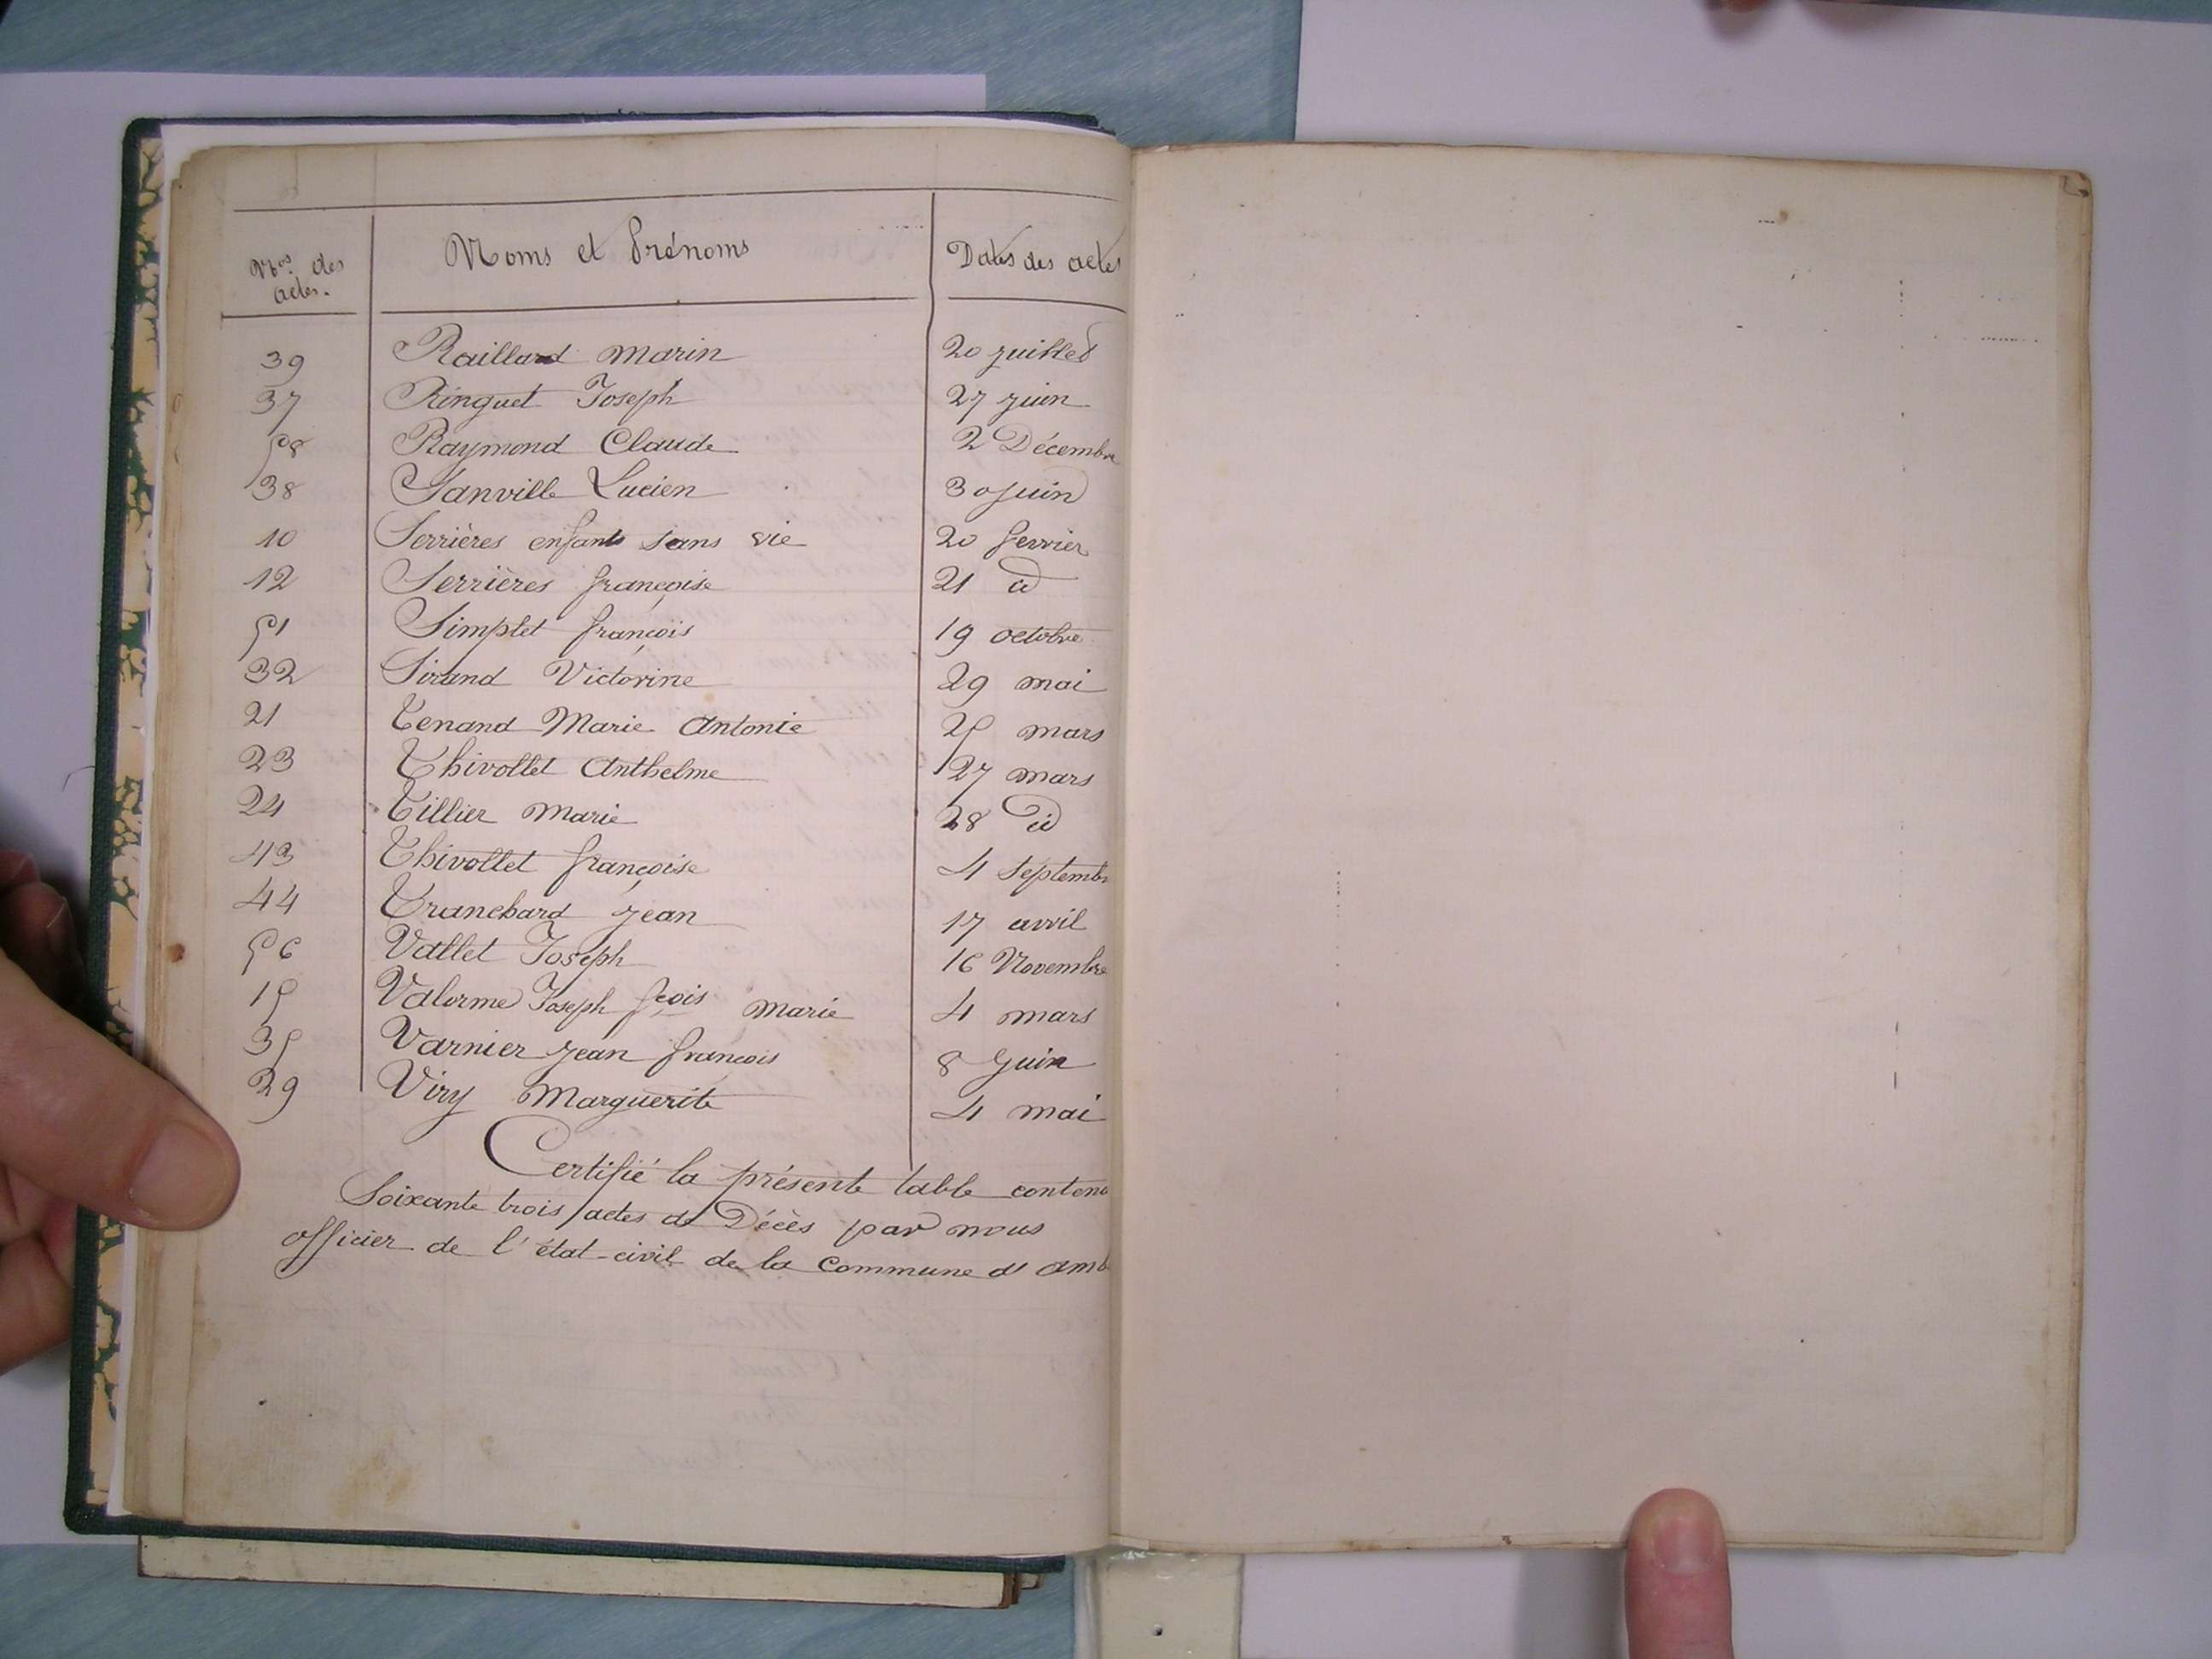 Nos des actes.
Noms et Prénoms
Dates des actes
39 Raillard Marin 20 juillet
37 Ringuet Joseph 27 juin
58 Raymond Claude 2 Décembre
38 Sanville Lucien 30 juin
10 Serrières enfants sans vie 20 fevrier
12 Serrières françoise 21 id
51 Simplet françois 19 octobre
32 Sirand Victorine 29 mai
21 Tenand Marie Antonie 25 mars
23 Thivollet Anthelme 27 mars
24 Tillier Marie 28 id
43 Thivollet françoise 4 Septembr
44 Tranchard Jean 17 avril
56 Vallet Joseph 16 Novembre
15 Valorme Joseph fçois Marie 4 mars
35 Varnier Jean françois 8 Juin
29 Viry Marguerite 4 mai
Certifié la présente table conten
Soixante trois actes de Décès par nous
officier de l'état-civil de la Commune d'Amb